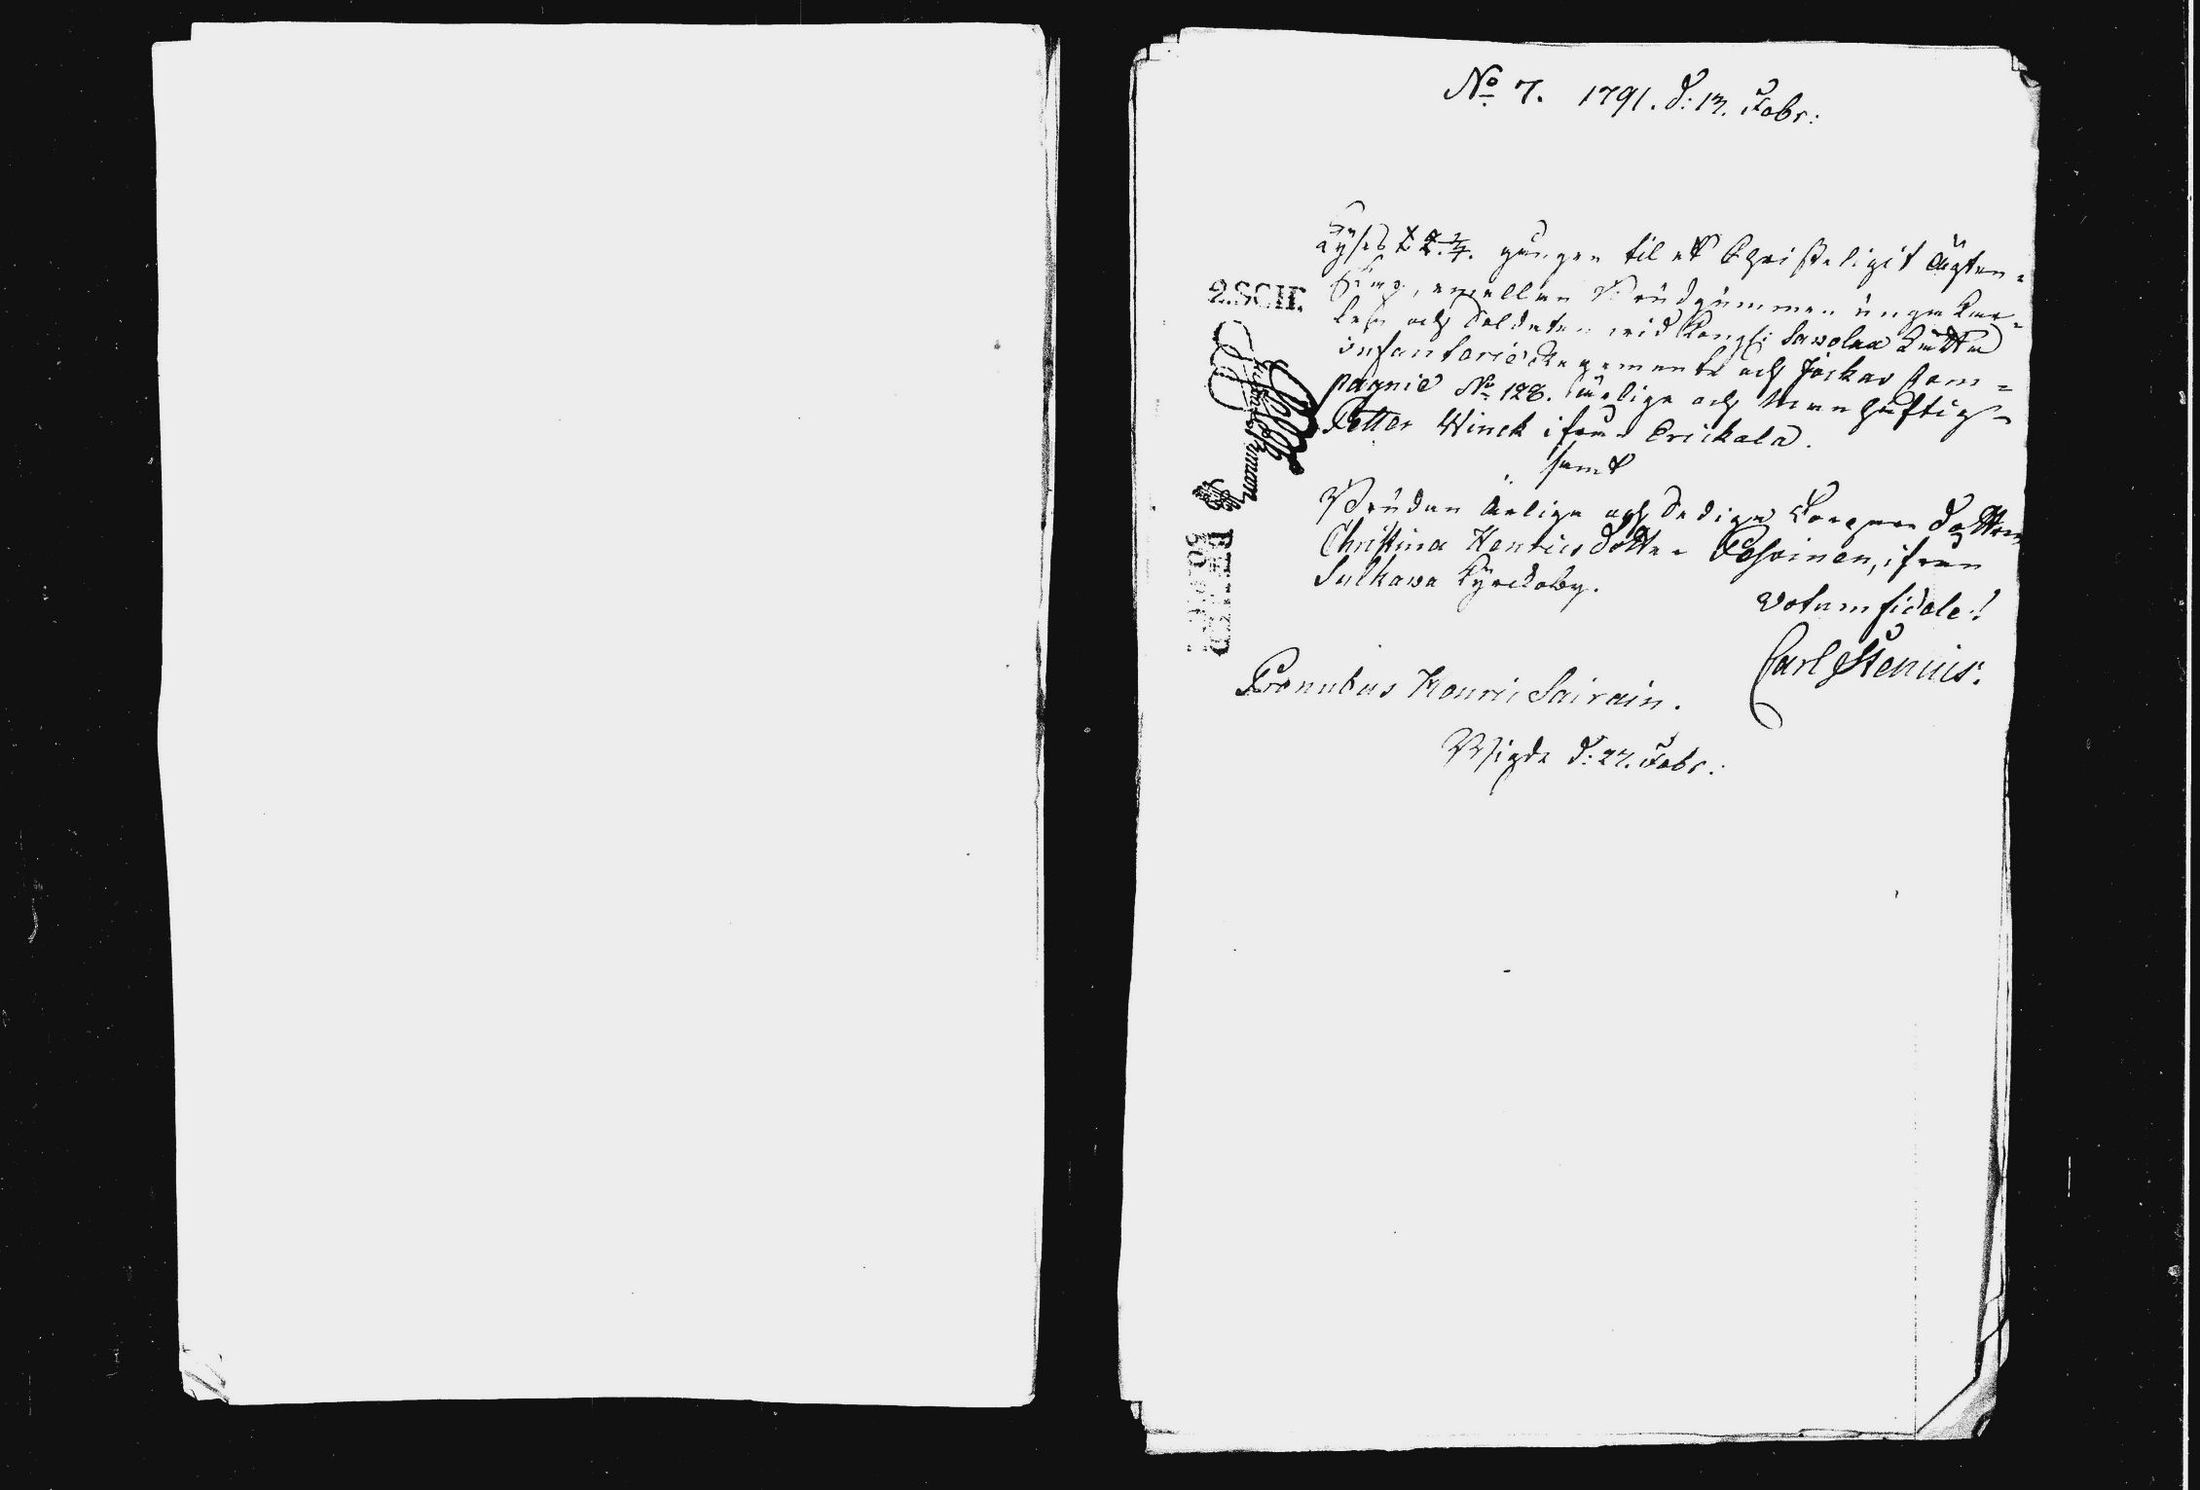 No 7. 1791. d: 13. Febr:
Lyses 1. 2. 3/. gången til et Christeligit Ägten=
skap, emellan Brudgummen unge Kar=
len och Soldaten vid Kongl: Savolax Lätta
infanterie Regemente och Jockas Com=
pagnie No 128. ärlige och Manhaftige
Petter Winck ifrån Erickala.
samt
Bruden ärliga och dediga Borgare dottren
Christina Henrics dotter ifrån
Sulkava Kyrckoby.
votum fidele!
Carl Stenius.
Pronubus Henric Sairain.
Vigde d: 27. Febr:
2.SCH.